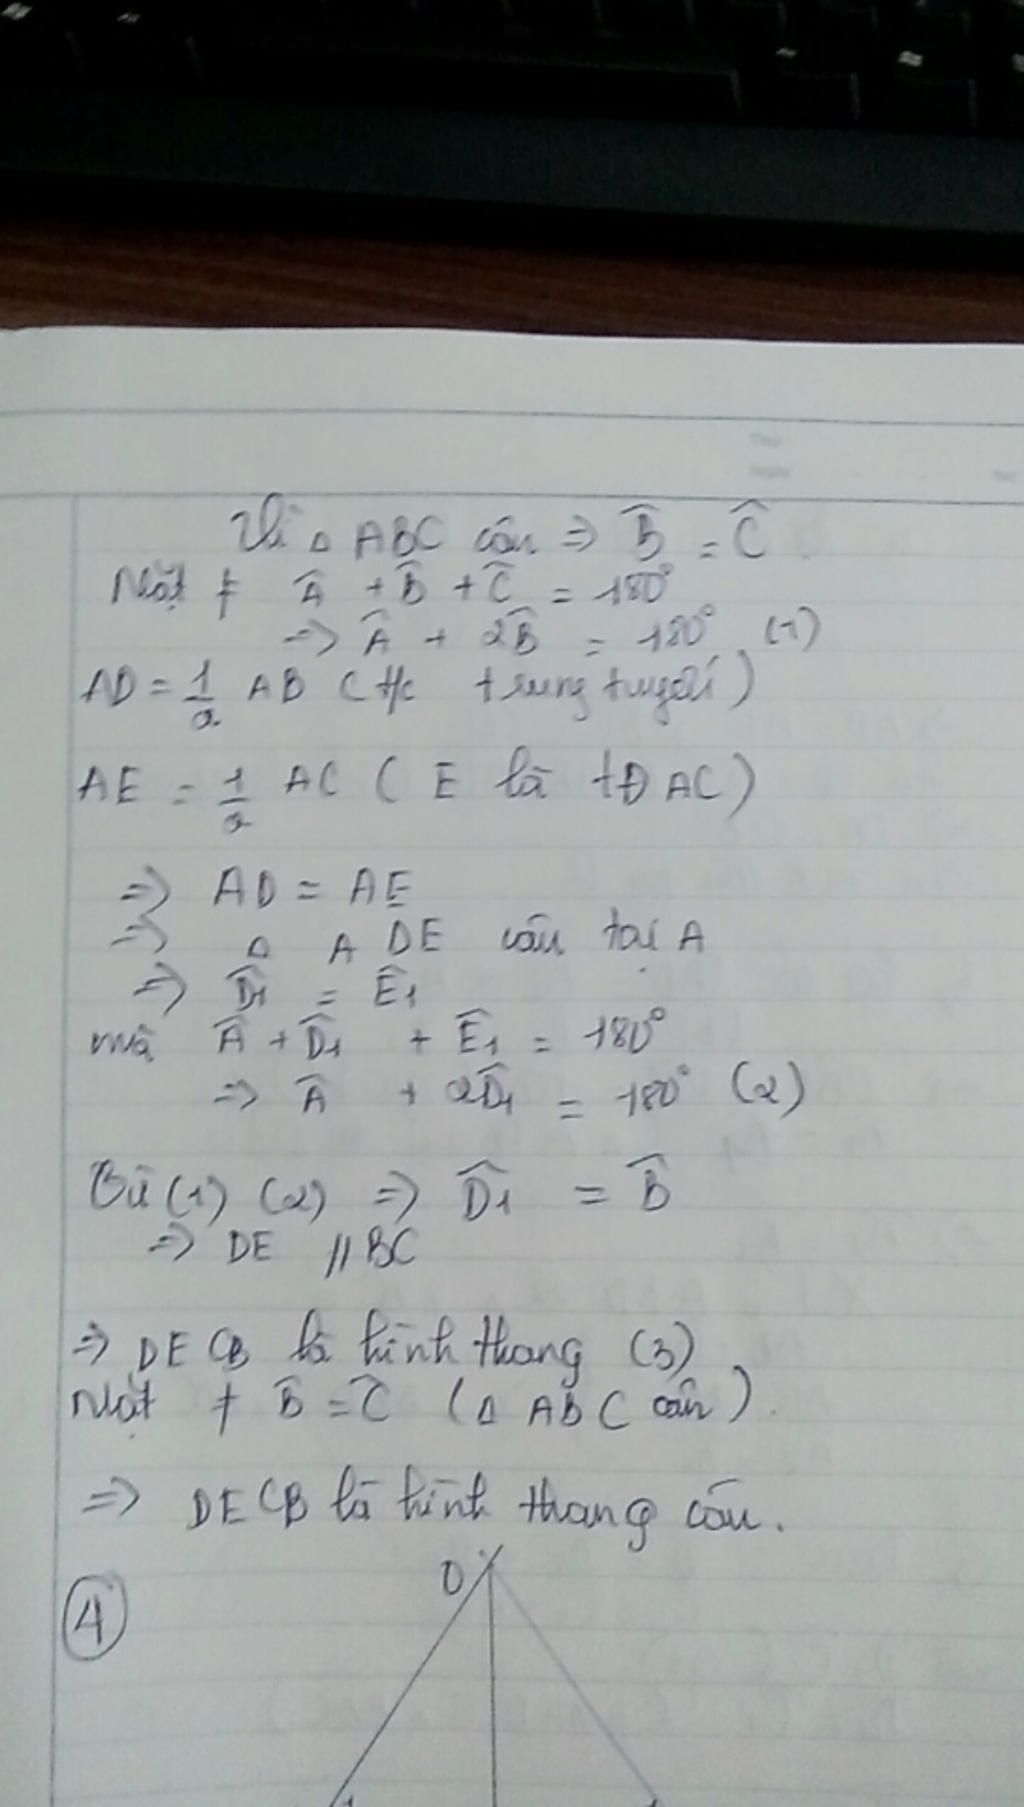 Vì △ ABC cân ⇒ B̂ = Ĉ
Mặt ≠ Â + B̂ + Ĉ = 180°
⇒ Â + 2B̂ = 180° (1)
AD = 1/2 AB ( t/c trung tuyến )
AE = 1/2 AC ( E là tĐ AC )
⇒ AD = AE
⇒ △ ADE cân tại A
⇒ D̂1 = Ê1
mà Â + D̂1 + Ê1 = 180°
⇒ Â + 2D̂1 = 180° (2)
Từ (1) (2) ⇒ D̂1 = B̂
⇒ DE // BC
⇒ DECB là hình thang (3)
Mặt ≠ B̂ = Ĉ (△ ABC cân ).
⇒ DECB là hình thang cân.
4
O